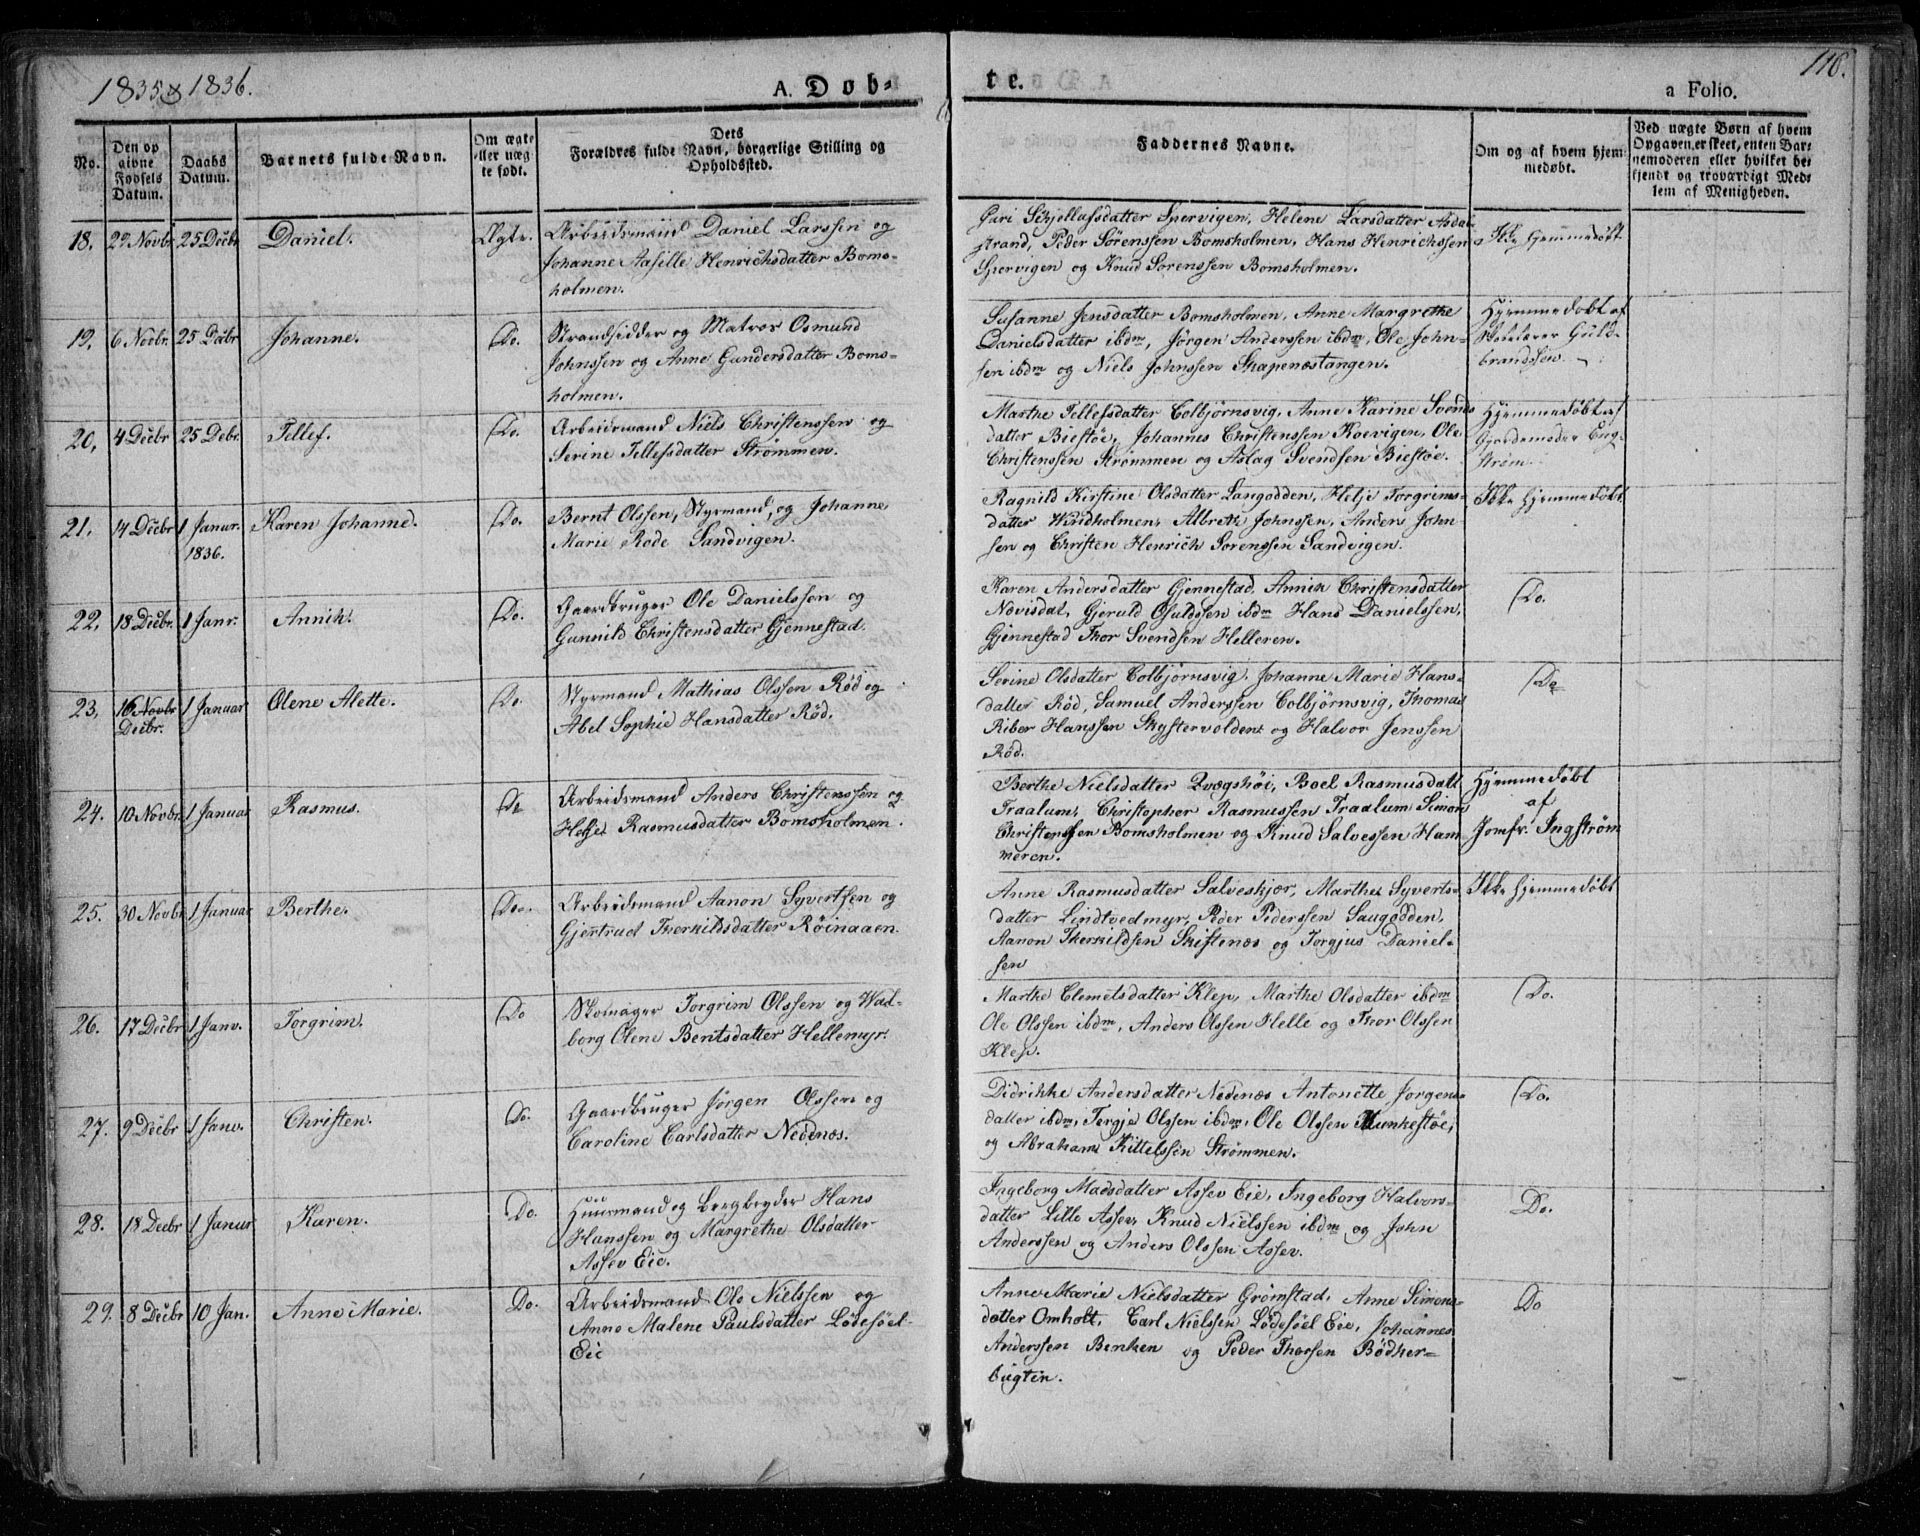 1835 & 1836.
A. Døb-
te.
116.
a Folio.
No.
Den op
givne
Fødsels
Datum.
Daabs
Datum.
Barnets fulde Navn.
Om ægte
eller uæg
te født.
Dets
Forældres fulde Navn, borgerlige Stilling og
Opholdssted.
Faddernes Navne.
Om og af hvem hjem
medøbt.
Ved uægte Børn af hvem
Opgaven er skeet, enten Bar-
nemoderen eller hvilket be-
kjendt og troværdigt Med-
lem af Menigheden.
18. 29 Novbr 25 Decbr Daniel. Ægte.
Arbeidsmand Daniel Larssen og
Johanne Aasille Henrichsdatter Boms-
holmen.
Guri Skjellufsdatter Spervigen, Helene Larsdatter Asdal
strand, Peder Sörenssen Bomsholmen, Hans Henrichssen
Spervigen og Knud Sorenssen Bomsholmen.
Ikke hjemmedøbt
19. 6 Novbr. 25 Debr Johanne. Do.
Strandsidder og Matros Osmund
Johnssen og Anne Gundersdatter Boms-
holmen.
Susanne Jensdatter Bomsholmen, Anne Margrethe
Danielsdatter ibdm, Jörgen Anderssen ibdm, Ole John-
sen ibdm og Niels Johnssen Skapenæstangen.
Hjemmedøbt af
Skolelærer Guld-
brandsen.
20, 4 Decbr 25 Debr. Tellef. Do.
Arbeidsmand Niels Christenssen og
Serine Tellefsdatter Strømmen.
Marthe Tellefsdatter Colbjørnsvig, Anne Karine Svends
datter Biestøe, Johannes Christenssen Koevigen, Ole
Christenssen Strømmen og Aslag Svendsen Biestøe.
Hjemmedøbt af
Gjordemoder Eng-
strøm.
21, 14 Decbr 1 Janur. 1836. Karen Johanne. Do.
Bernt Olssen, Styrmand, og Johanne
Marie Rode Sandvigen.
Ragnild Kirstine Olsdatter Langodden, Helje Torgrims-
datter Windholmen, Albreth Johnssen, Anders John-
sen og Christen Henrich Sorenssen Sandvigen.
Ikke hjemmedøbt
22, 18 Decbr. 1 Janr. Annik. Do.
Gaardbruger Ole Danielssen og
Gunnild Christensdatter Gjennestad.
Karen Andersdatter Gjennestad, Annik Christensdatter
Nævisdal, Gjeruld Osuldssen ibdm Hans Danielssen,
Gjennestad Thor Svendsen Helleren.
Do.
23, 16 Novbr Decbr. 1 Januar Olene Alette. Do.
Styrmand Mathias Olssen Rød og
Abel Sophie Hansdatter Rød.
Serine Olsdatter Colbjørnsvig, Johanne Marie Hans-
datter Rød, Samuel Anderssen Colbjørnsvig, Thomas
Riber Hanssen Skystervolden og Halvor Jenssen
Rød.
Do
24. 10 Novbr. 1 Januar Rasmus. Do
Arbeidsmand Anders Christenssen og
Helje Rasmusdatter Bomsholmen.
Berthe Nielsdatter Qvægshøi, Boel Rasmusdatt
Traalum, Christopher Rasmussen Traalum Simon
Christenssen Bomsholmen og Knud Salvessen Ham
meren.
Hjemmedøbt
af
Jomfr. Ingstrøm
25. 30 Novbr 1 Januar Berthe. Do.
Arbeidsmand Aanon Syvertsen og
Gjertrud Therkildsdatter Røinaaen.
Anne Rasmusdatter Salveskjær, Marthe Syverts-
datter Lindtvedmyr, Peder Pederssen Saugodden,
Aanon Therkildsen Skiftenæs og Torgjus Daniel-
sen
Ikke hjemmedøbt
26. 17 Decbr 1 Janv. Torgrim. Do
Skomager Torgrim Olssen og Wad-
borg Olene Bentsdatter Hellemyr.
Marthe Clemetsdatter Klep, Marthe Olsdatter ibdm
Ole Olssen ibdm, Anders Olssen Helle og Thor Olssen
Klep.
Do.
27. 9 Decbr 1 Janv. Christen. Do.
Gaardbruger Jørgen Olssen og
Caroline Carlsdatter Nedenæs.
Didrikke Andersdatter Nedenæs Antonette Jorgens-
datter ibdm, Tergje Olssen ibdm, Ole Olssen Munkestøe,
og Abraham Kittelssen Strømmen.
Do.
28. 18 Decbr 1 Janur Karen. Do.
Huusmand og Bergbryder Hans
Hanssen og Margrethe Olsdatter
Assev Eie.
Ingeborg Madsdatter Assev Eie, Ingeborg Halvors-
datter Lille Assev, Knud Nielssen ibdm og John
Anderssen og Anders Olssen Assev.
Do.
29. 8 Decbr 10 Jan. Anne Marie. Do.
Arbeidsmand Ole Nielssen og
Anne Malene Paulsdatter Lødesøel-
Eie
Anne Marie Nielsdatter Grømstad, Anne Simons-
datter Omholt, Carl Nielssen Lødesøel Eie, Johannes
Anderssen Benken og Peder Thorsen Bødker-
bugten.
Do